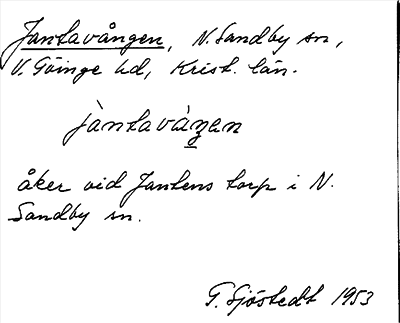 Jantavången, N. Sandby sn,
V. Göinge hd, Krist. län.
jàntavåŋen
åker vid Jantens torp i N.
Sandby sn.
G. Sjöstedt 1953